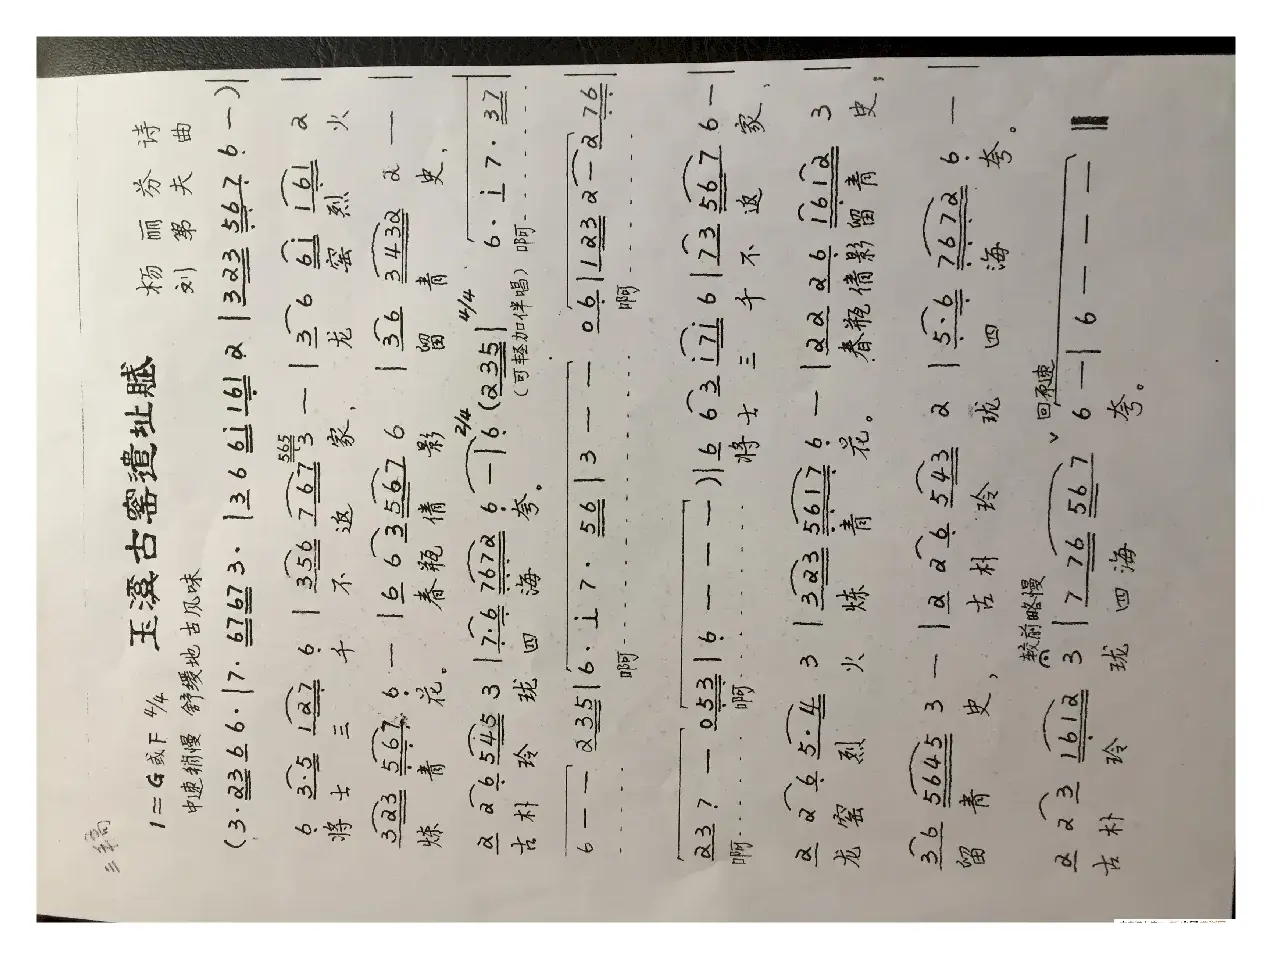 三稿
玉溪古窑遗址赋
1=G或F 4/4
杨丽芬 诗
中速稍慢 舒缓地 古风味
刘第夫 曲
(3·2366·|7·67673·|366i161 2|323 567 6 —)|
6 3·5 127 6|356 767 3 —|36 6i 161 2|
565
将士三千不返家，龙窑烈火
323 567 6 —|663 567 6|36 3432 2 —|
炼青花。春瓶倩影留青史，
2 26 545 3|7·6 7672 6 —|6(235|6·i7·37|
2/4 4/4
古朴玲珑四海夸。(可轻加伴唱)啊
6 — — 235|6·i7·56|3 — — 06|123 2 — 276|
啊 啊
237 — 053|6 — — —)|663 i7i 6|73 567 6 —|
啊 啊 将士三千不返家，
2 26 5·4 3|323 5617 6 —|2226 1612 3|
龙窑烈火炼青花。春瓶倩影留青史；
36 5645 3 —|226 543 2|5·6 7672 6 —|
留青史，古朴玲珑四海夸。
较前略慢 回原速
2 23 1612 3|7 76 567 6 —|6 — — —
古朴玲珑四海夸。